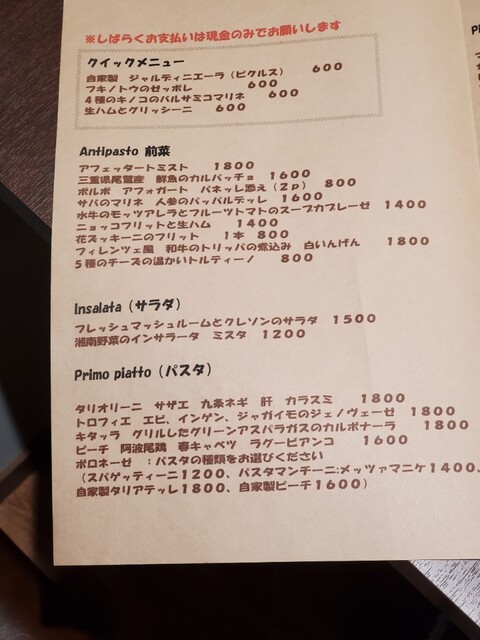 ※しばらくお支払いは現金のみでお願いします
クイックメニュー
自家製 ジャルディニエーラ(ピクルス) 600
フキノトウのゼッポレ 600
4種のキノコのバルサミコマリネ 600
生ハムとグリッシーニ 600
Antipasto 前菜
アフェッタートミスト 1800
三重県尾鷲産 鮮魚のカルパッチョ 1600
ポルポ アフォガート パネッレ添え(2p) 800
サバのマリネ 人参のパッパルデッレ 1600
水牛のモッツアレラとフルーツトマトのスープカプレーゼ 1400
ニョッコフリットと生ハム 1400
花ズッキーニのフリット 1本 800
フィレンツェ風 和牛のトリッパの煮込み 白いんげん 1800
5種のチーズの温かいトルティーノ 800
Insalata(サラダ)
フレッシュマッシュルームとクレソンのサラダ 1500
湘南野菜のインサラータ ミスタ 1200
Primo piatto(パスタ)
タリオリーニ サザエ 九条ネギ 肝 カラスミ 1800
トロフィエ エビ、インゲン、ジャガイモのジェノヴェーゼ 1800
キタッラ グリルしたグリーンアスパラガスのカルボナーラ 1800
ピーチ 阿波尾鶏 春キャベツ ラグービアンコ 1600
ボロネーゼ :パスタの種類をお選びください
(スパゲッティーニ1200、パスタマンチーニ:メッツァマニケ1400、
自家製タリアテッレ1800、自家製ピーチ1600)